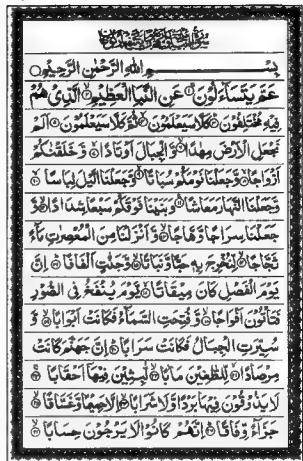 بِسْمِ اللهِ الرَّحْمٰنِ الرَّحِيْمِ
عَمَّ يَتَسَآءَلُوْنَ ۝ عَنِ النَّبَاِ الْعَظِيْمِ ۝ الَّذِيْ هُمْ
فِيْهِ مُخْتَلِفُوْنَ ۝ كَلَّا سَيَعْلَمُوْنَ ۝ ثُمَّ كَلَّا سَيَعْلَمُوْنَ ۝ اَلَمْ
نَجْعَلِ الْاَرْضَ مِهٰدًا ۝ وَّالْجِبَالَ اَوْتَادًا ۝ وَّخَلَقْنٰكُمْ
اَزْوَاجًا ۝ وَّجَعَلْنَا نَوْمَكُمْ سُبَاتًا ۝ وَّجَعَلْنَا الَّيْلَ لِبَاسًا ۝
وَّجَعَلْنَا النَّهَارَ مَعَاشًا ۝ وَّبَنَيْنَا فَوْقَكُمْ سَبْعًا شِدَادًا ۝ وَّ
جَعَلْنَا سِرَاجًا وَّهَّاجًا ۝ وَّاَنْزَلْنَا مِنَ الْمُعْصِرٰتِ مَآءً
ثَجَّاجًا ۝ لِّنُخْرِجَ بِهٖ حَبًّا وَّنَبَاتًا ۝ وَّجَنّٰتٍ اَلْفَافًا ۝ اِنَّ
يَوْمَ الْفَصْلِ كَانَ مِيْقَاتًا ۝ يَّوْمَ يُنْفَخُ فِي الصُّوْرِ
فَتَاْتُوْنَ اَفْوَاجًا ۝ وَّفُتِحَتِ السَّمَآءُ فَكَانَتْ اَبْوَابًا ۝ وَّ
سُيِّرَتِ الْجِبَالُ فَكَانَتْ سَرَابًا ۝ اِنَّ جَهَنَّمَ كَانَتْ
مِرْصَادًا ۝ لِّلطّٰغِيْنَ مَاٰبًا ۝ لّٰبِثِيْنَ فِيْهَاۤ اَحْقَابًا ۝
لَا يَذُوْقُوْنَ فِيْهَا بَرْدًا وَّلَا شَرَابًا ۝ اِلَّا حَمِيْمًا وَّغَسَّاقًا ۝
جَزَآءً وِّفَاقًا ۝ اِنَّهُمْ كَانُوْا لَا يَرْجُوْنَ حِسَابًا ۝